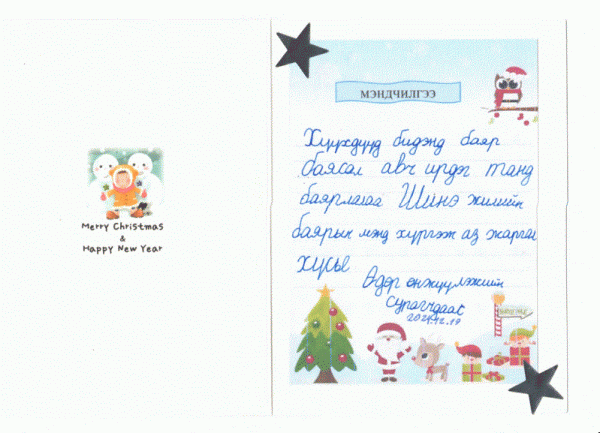 Merry Christmas
&
Happy New Year
МЭНДЧИЛГЭЭ
Хүүхдүүд бидэнд баяр
баясал авч ирдэг танд
баярлалаа Шинэ жилийн
баярын мэнд хүргэж аз жаргал
хүсье
Өдөр өнжүүлэхийн
сурагчдаас
2024.12.19